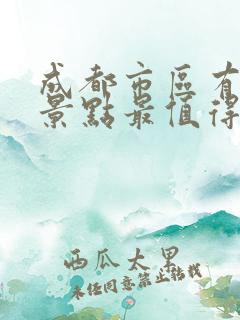 成都市區有
景點最值得
西瓜太男
未经同意禁止转载